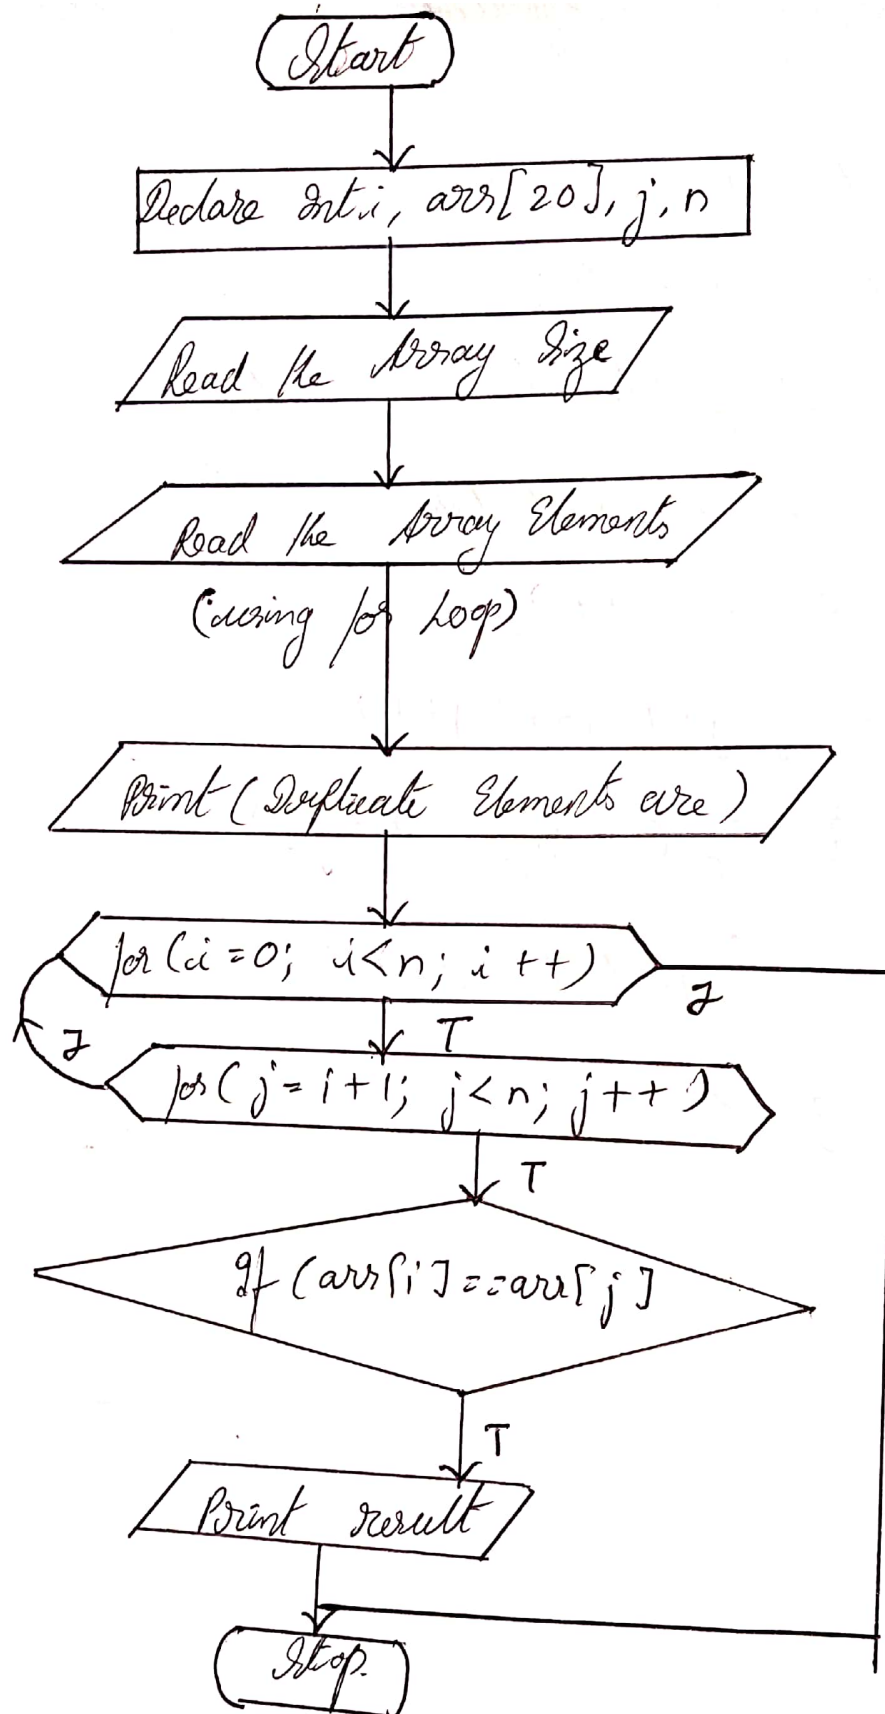 Start
Declare Int i, arr[20], j, n
Read the Array Size
Read the Array Elements
(using for Loop)
Print (Duplicate Elements are)
for (i=0; i<n; i++)
F
T
F
for (j=i+1; j<n; j++)
T
If (arr[i]==arr[j]
T
Print result
Stop.